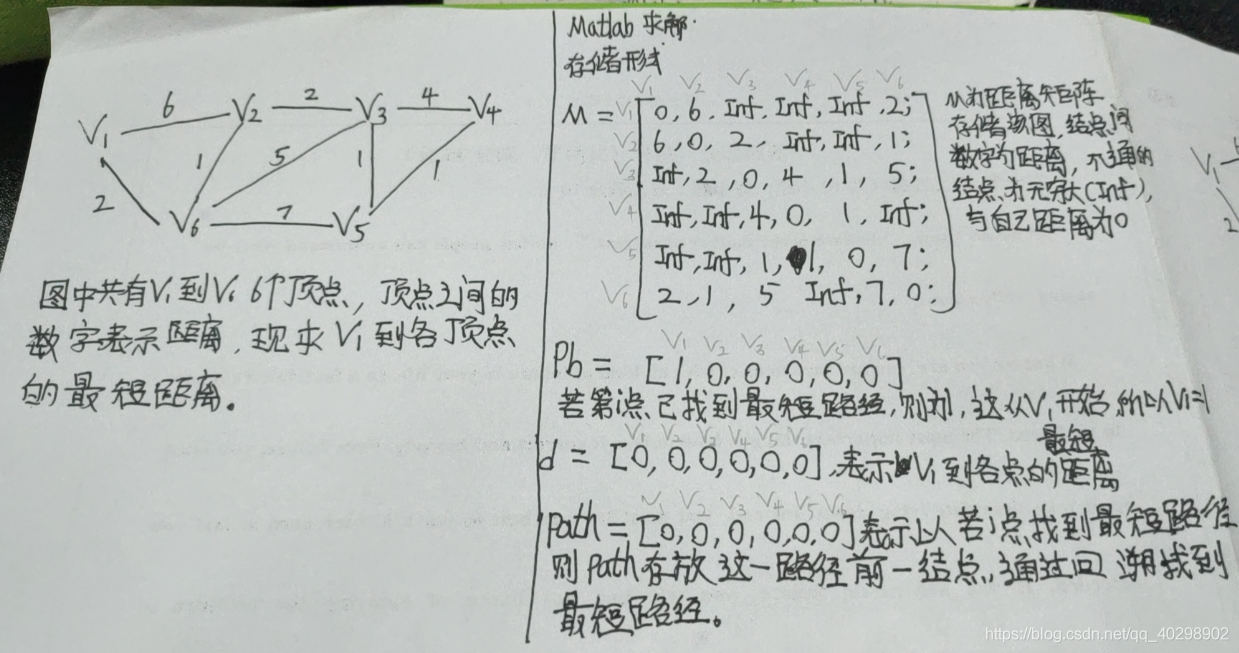 6
2
4
V1
V2
V3
V4
1
5
1
1
2
V6
7
V5
图中共有V1到V6 6个顶点，顶点之间的
数字表示距离，现求V1到各顶点
的最短距离。
Matlab 求解.
存储形式
V1 V2 V3 V4 V5 V6
M = V1 [0, 6, Inf, Inf, Inf, 2;
V2 6, 0, 2, Inf, Inf, 1;
V3 Inf, 2, 0, 4, 1, 5;
V4 Inf, Inf, 4, 0, 1, Inf;
V5 Inf, Inf, 1, 1, 0, 7;
V6 2, 1, 5 Inf, 7, 0;]
M为距离矩阵
存储该图，结点间
数字为距离，不通的
结点为无穷大(Inf),
与自己距离为0
V1 V2 V3 V4 V5 V6
Pb = [1, 0, 0, 0, 0, 0]
若第i点已找到最短路径，则为1，这从V1开始，所以V1=1
V1 V2 V3 V4 V5 V6
最短
d = [0, 0, 0, 0, 0, 0],表示V1到各点的距离
V1 V2 V3 V4 V5 V6
Path = [0, 0, 0, 0, 0, 0]表示以若i点找到最短路径
则Path存放这一路径前一结点，通过回溯找到
最短路径。
V1
2
https://blog.csdn.net/qq_40298902